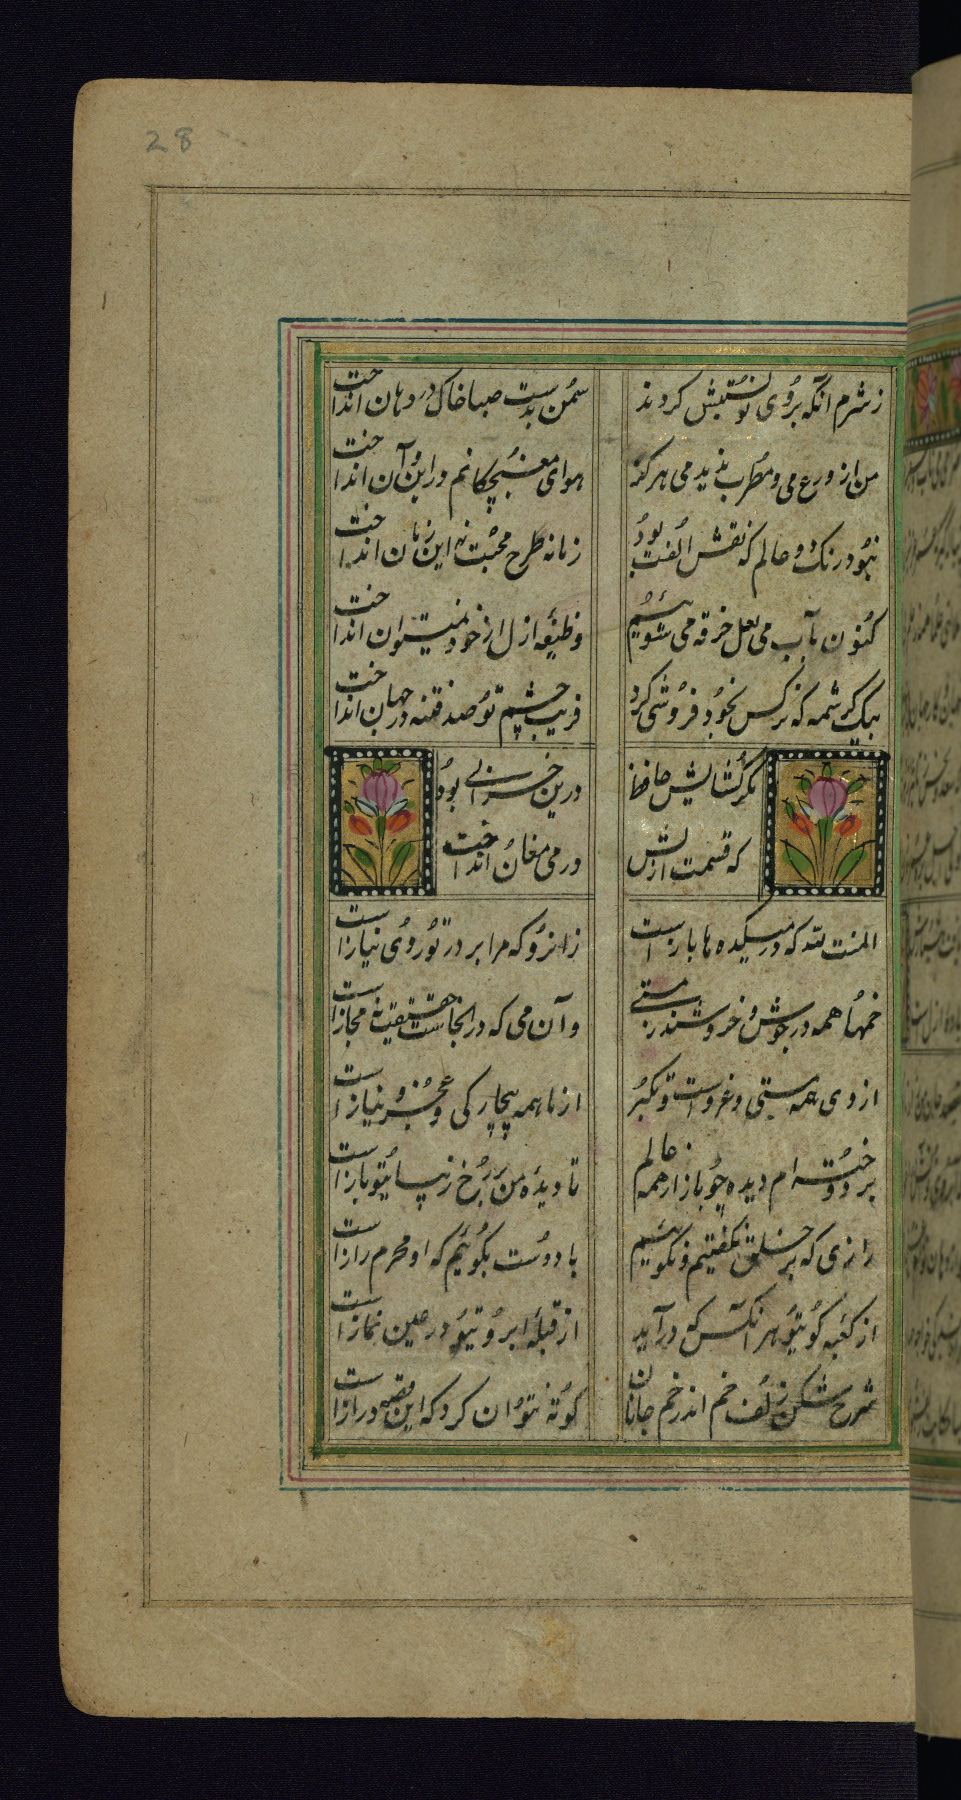 28
ز شرم آنکه بروی تو نسبتش کردند سمن بدست صبا خاک در دهان انداخت
من از ورع می و مطرب ندیدمی هرگز هوای مغبچکانم در این و آن انداخت
نبود رنک دو عالم که نقش الفت بود زمانه طرح محبت نه این زمان انداخت
کنون بآب می لعل خرقه می شویم وظیفه ازل از خود نمیتوان انداخت
بیک کرشمه که نرکس بخود فروشی کرد فریب چشم تو صد فتنه در جهان انداخت
مکر کشایش حافظ درین خرابی بود
که قسمت ازلش در می مغان انداخت
المنت لله که در میکده ها باز است زانرو که مرا بر در تو روی نیاز است
خمها همه در جوش و خروشند ز مستی وآن می که در آنجاست حقیقت نه مجاز است
از وی همه مستی و غرور است و تکبر از ما همه بیچارکی و عجز و نیاز است
بر دوخته ام دیده چو باز از همه عالم تا دیده من بر رخ زیبای تو باز است
رازی که بر خلق نکفتیم و نکوئیم با دوست بکوئیم که او محرم راز است
از کعبه کویتو هر آنکس که درآید از قبله ابروتیو در عین نماز است
شرح شکن زلف خم اندر خم جانان کوته نتوان کرد که این قصه دراز است